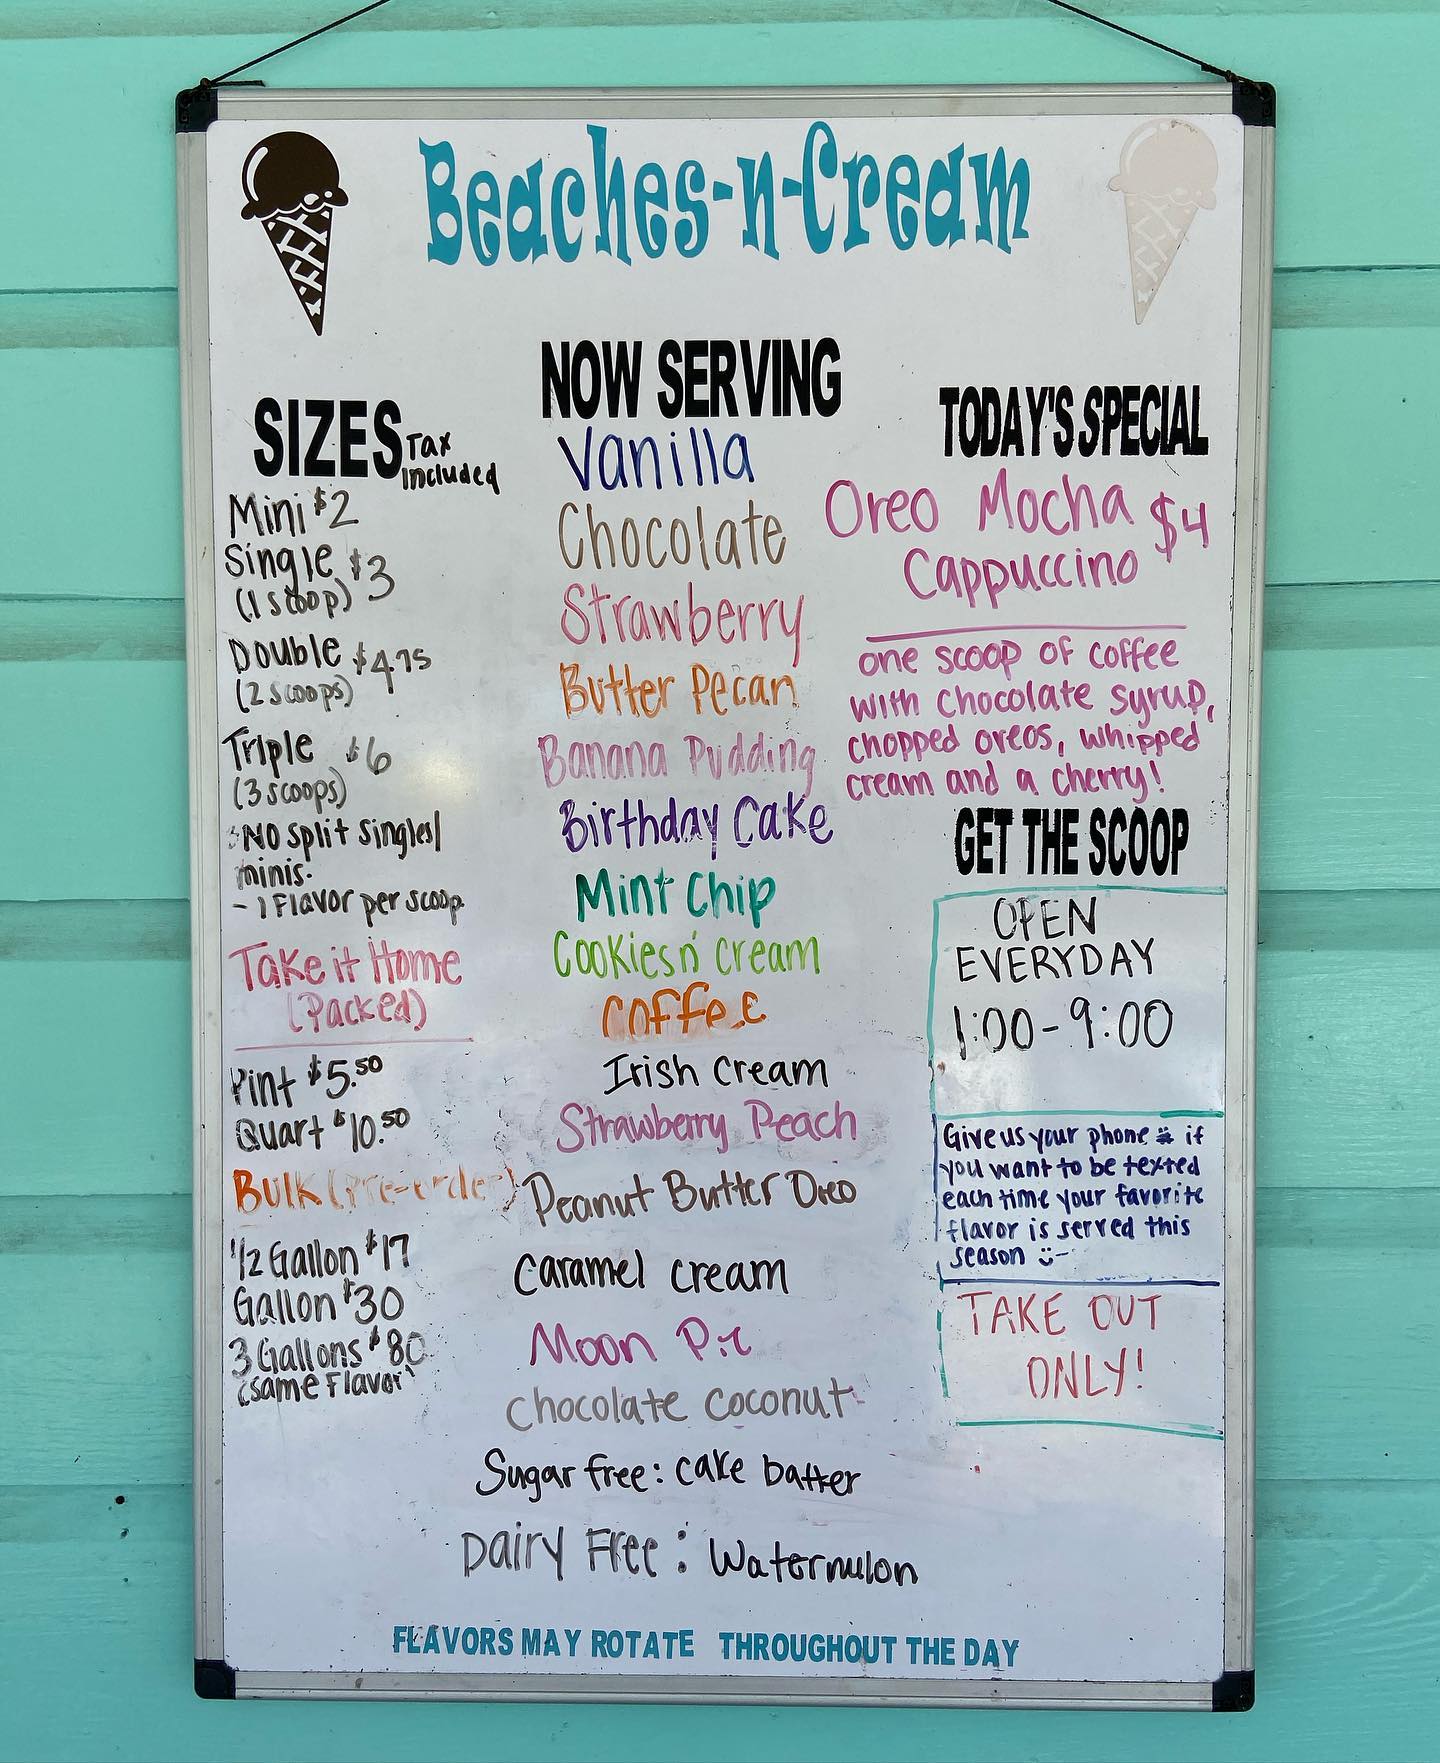 Beaches-n-Cream
SIZES Tax
Included
Mini $2
Single $3
(1 scoop)
Double $4.75
(2 scoops)
Triple $6
(3 scoops)
NO Split Singles/
minis.
- 1 Flavor per scoop
Take it Home
(Packed)
Pint $5.50
Quart $10.50
Bulk (Pre-order)
1/2 Gallon $17
Gallon $30
3 Gallons $80
(same Flavor)
NOW SERVING
Vanilla
Chocolate
Strawberry
Butter Pecan
Banana Pudding
Birthday Cake
Mint Chip
Cookies n' Cream
Coffee
Irish Cream
Strawberry Peach
Peanut Butter Oreo
Caramel Cream
Moon Pie
Chocolate Coconut
Sugar free: Cake batter
Dairy Free: Watermelon
TODAY'S SPECIAL
Oreo Mocha $4
Cappuccino
one scoop of coffee
with chocolate syrup,
chopped oreos, whipped
cream and a cherry!
GET THE SCOOP
OPEN
EVERYDAY
1:00-9:00
Give us your phone # if
you want to be texted
each time your favorite
flavor is served this
season :)
TAKE OUT
ONLY!
FLAVORS MAY ROTATE THROUGHOUT THE DAY